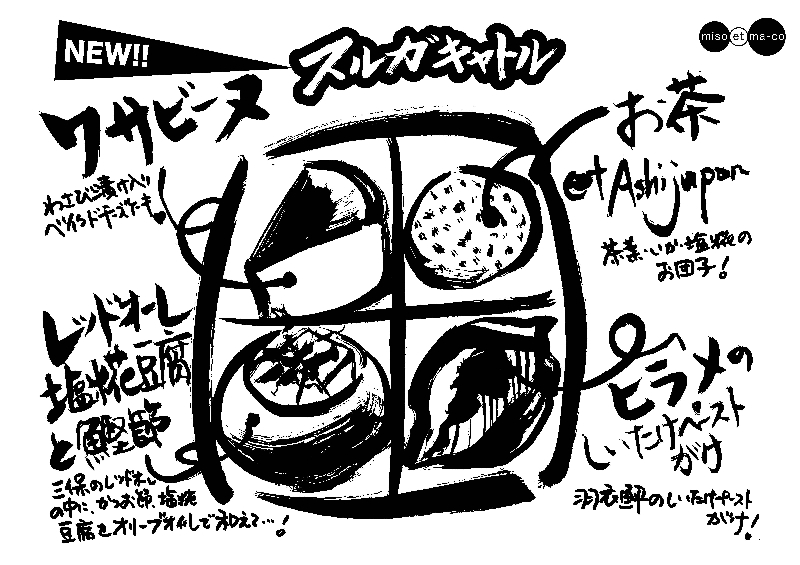 NEW!!
スルガキャトル
miso et ma-co
ワサビーヌ
わさび漬け入り
ベイクドチーズケーキ
お茶
et Ashi japon
茶葉・いか・塩糀の
お団子！
レッドオーレ
塩糀豆腐
と鰹節
三保のレッドオーレ
の中に、かつお節、塩糀
豆腐をオリーブオイルで和えて…！
ヒラメの
しいたけペースト
がけ
羽衣鮃のしいたけペースト
がけ！